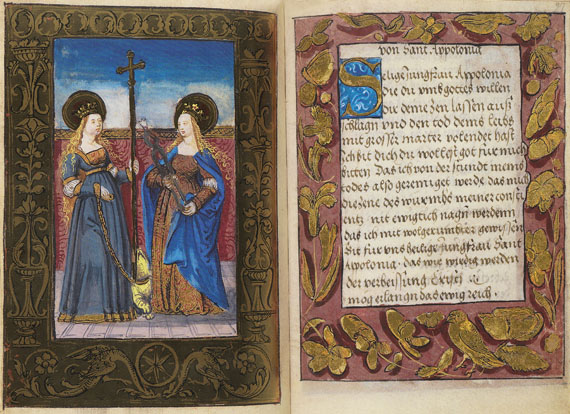 von Sant Appolonia
Selige Jungfrau Appolonia
die du vms gottes willen
Dir deine Zen lassen auß
schlagn vnd den tod deins leibs
mit grosser marter volendet hast
Ich bit dich du wollest got für mich
bitten Das ich von der stundt meins
todes also gereiniget werde das mich
die zene des wurmbs meiner consci
nit ewigclich nagn werdenn
das ich mit wolgerumbter gewissen
Bit für vns heilige Jungfrau Sant
Appolonia. das wir wirdig werden
der verheissung Cristi
mög erlangn das ewig reich.